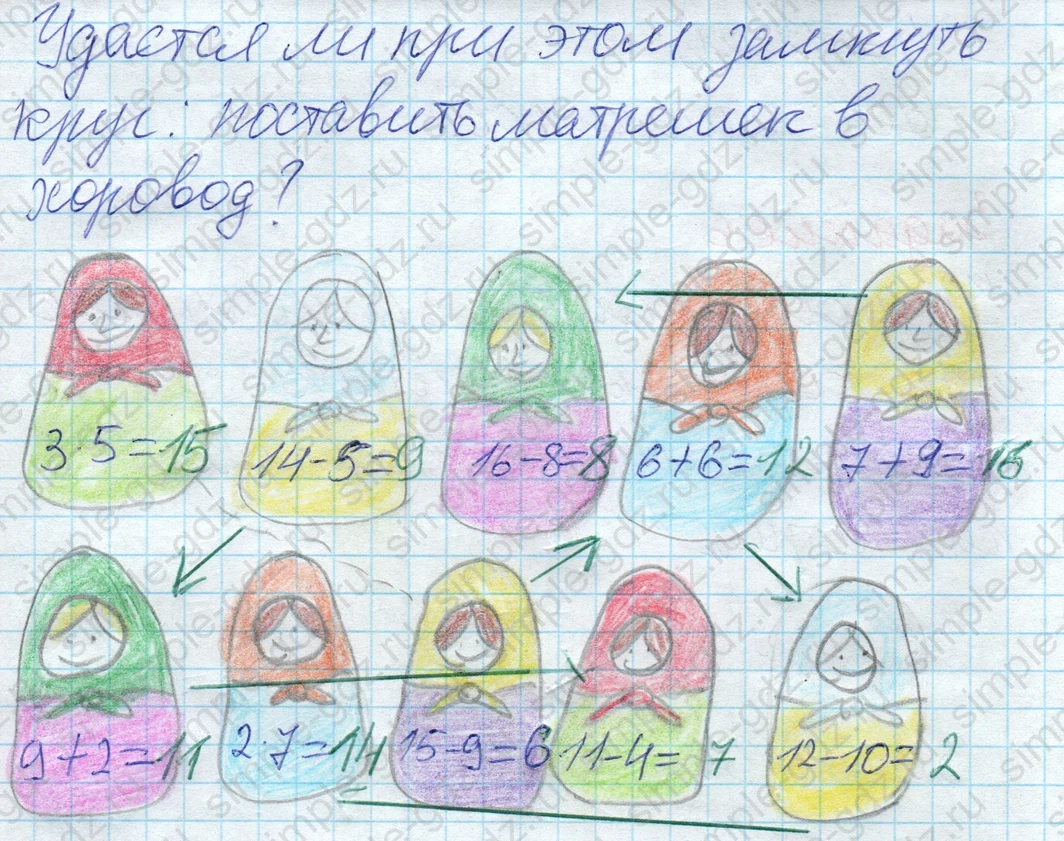 Удастся ли при этом замкнуть
круг: поставить матрешек в
хоровод?
3·5=15 14-5=9 16-8=8 6+6=12 7+9=16
9+2=11 2·7=14 15-9=6 11-4= 7 12-10= 2
simple-gdz.ru